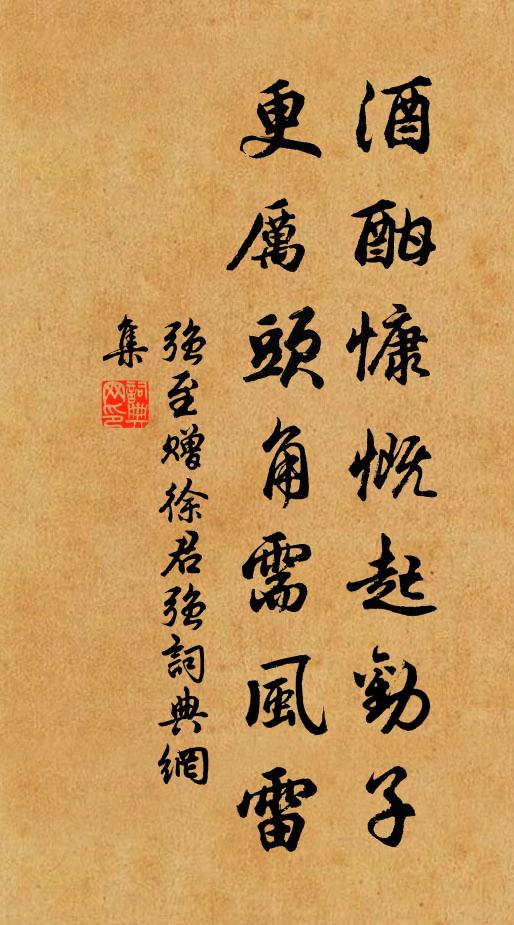 酒酣慷慨起勸子
更厲頭角需風雷
強至贈徐君強詞典網
集
詞典網印